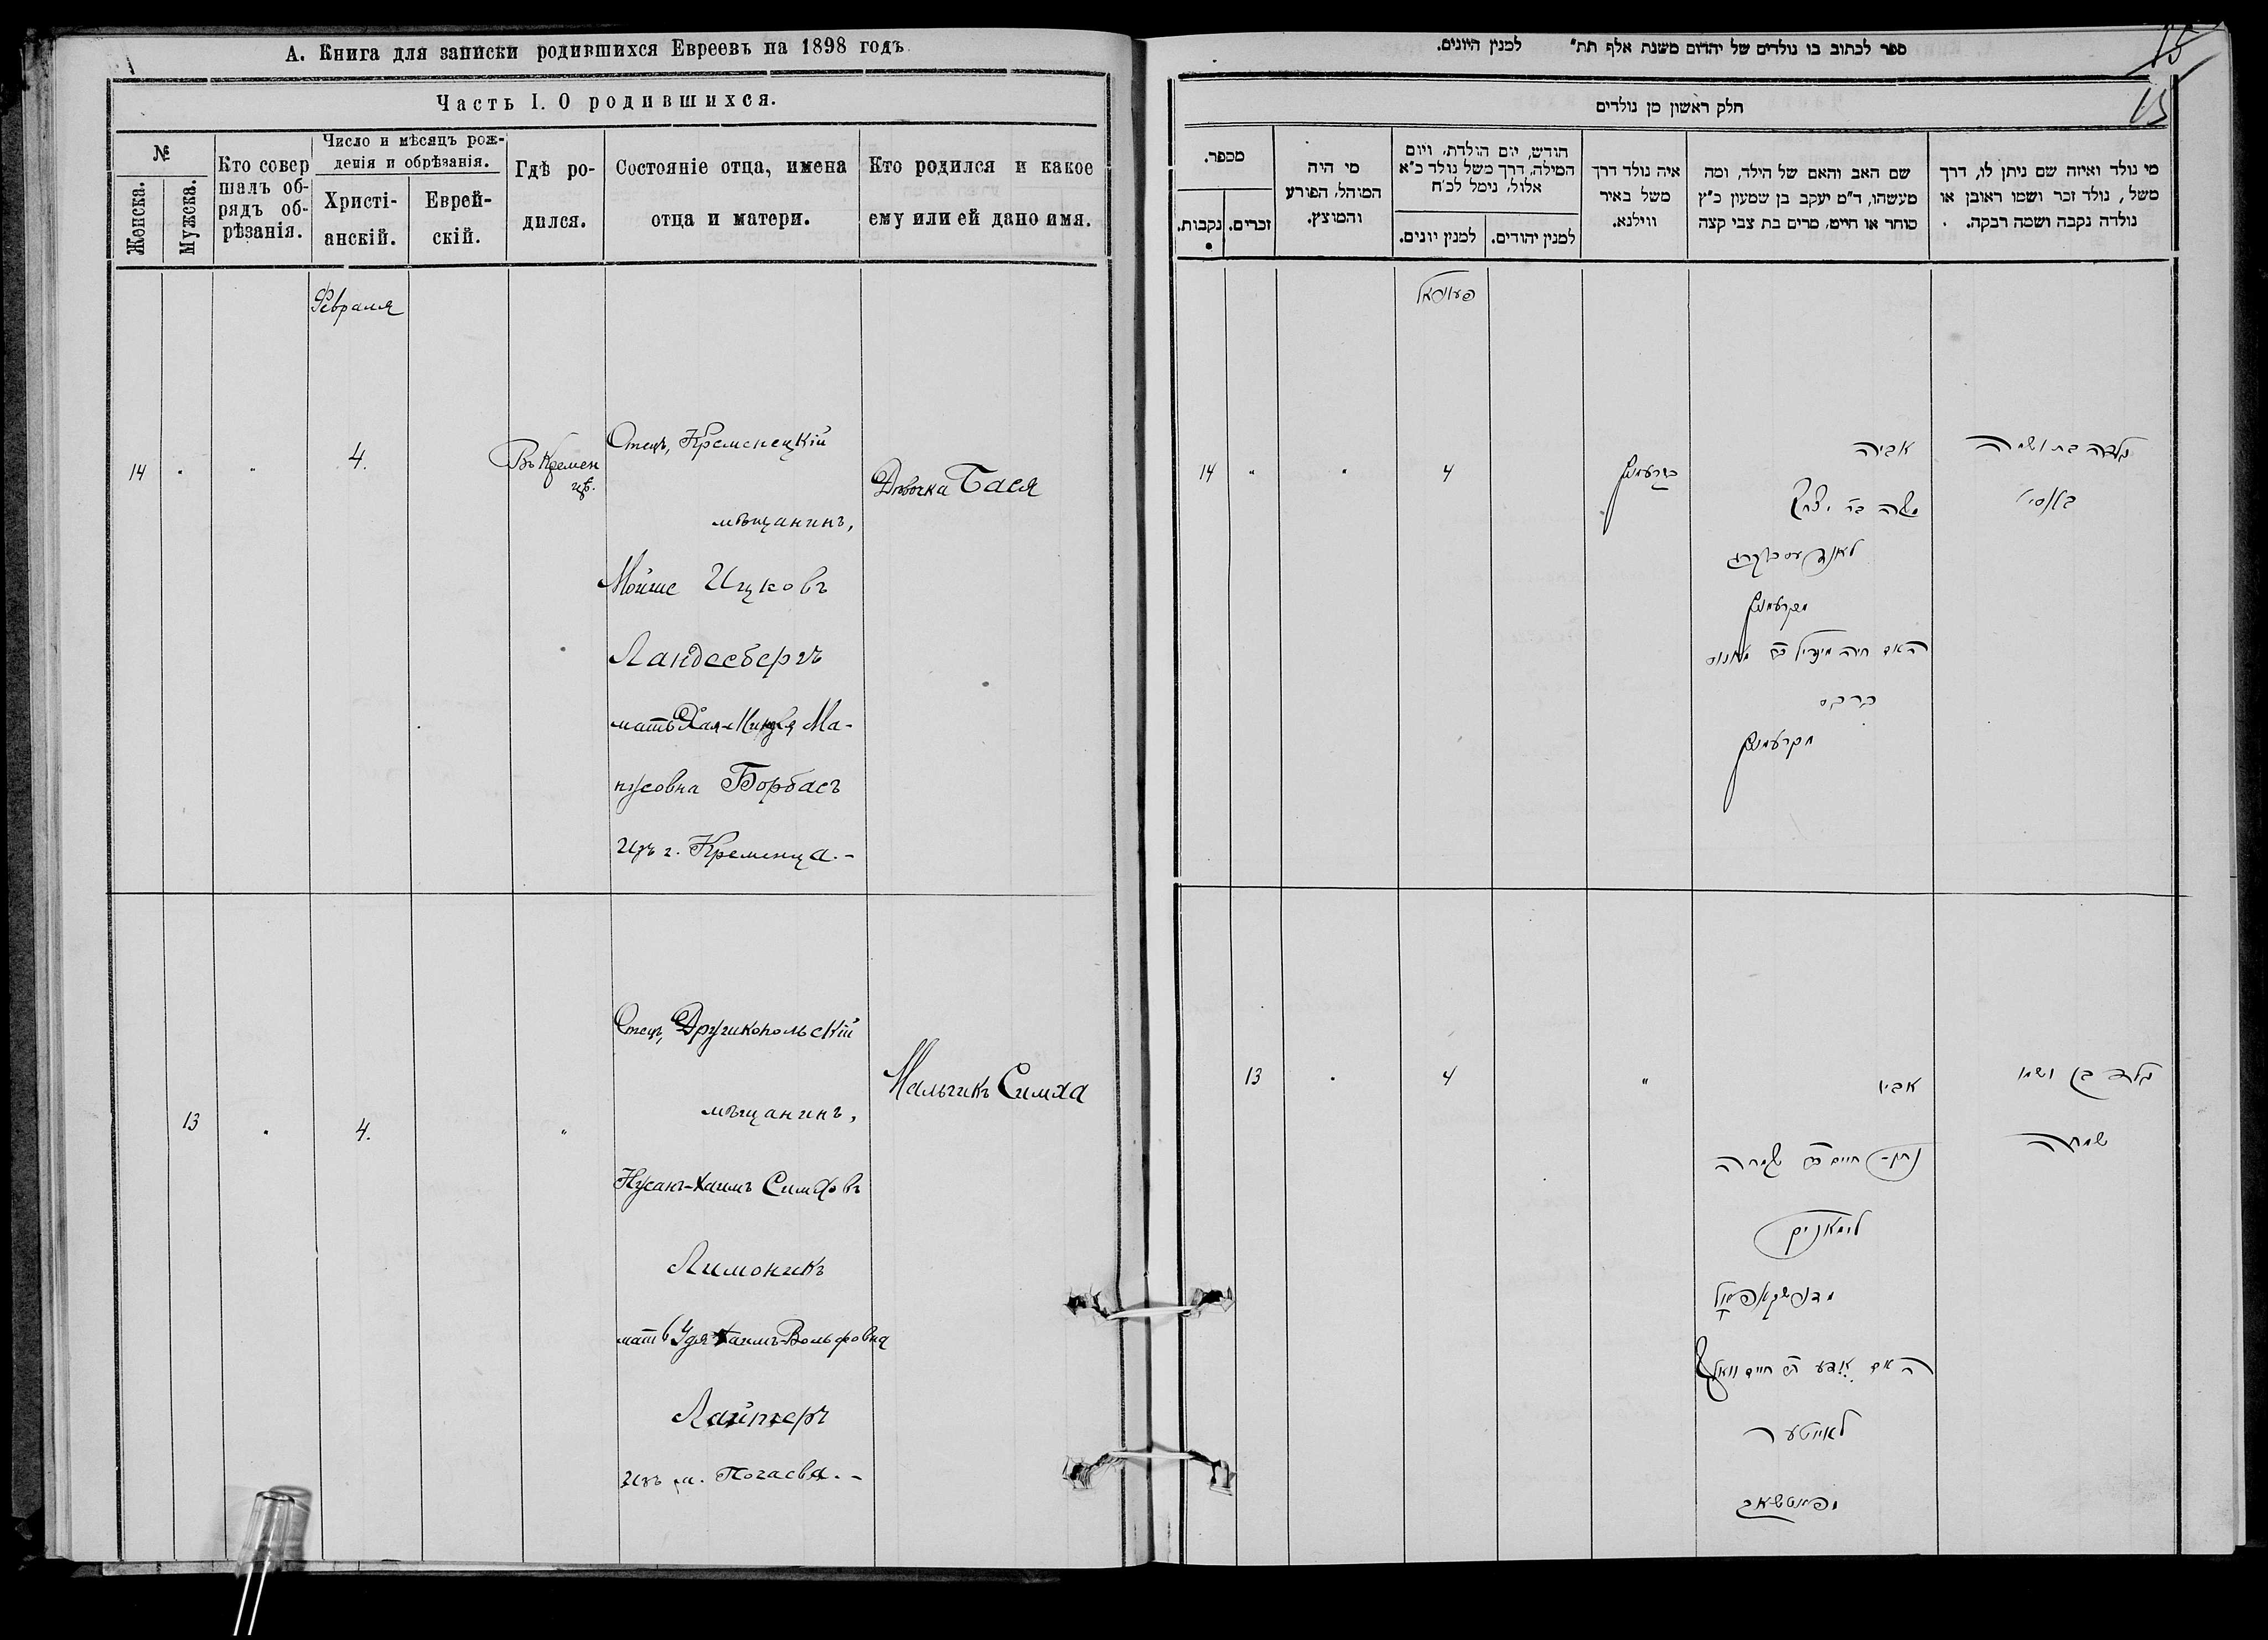 А. Книга для записки родившихся Евреевъ на 1898 годъ
Часть I. О родившихся.
№
Женска.
Мужска.
Кто совер
шалъ об-
рядъ об-
рѣзанія.
Число и мѣсяцъ рож-
денія и обрѣзанія.
Христі-
анскій.
Еврей-
скій.
Гдѣ ро-
дился.
Состояніе отца, имена
отца и матери.
Кто родился и какое
ему или ей дано имя.
Февраля
14
4.
Въ Кремен
цѣ.
Отецъ, Кременецкій
мѣщанинъ,
Мойше Ицковъ
Ландесбергъ
мать Хая-Миндля Ма-
нусовна Борбасъ
изъ г. Кременца.-
Дѣвочка Бася
13
4.
Отецъ, Дружкопольскій
мѣщанинъ,
Нусанъ-Хаимъ Симховъ
Лимоникъ
мать Удя Хаимъ-Вольфовна
Лайтеръ
изъ м. Почаева.-
Мальчикъ Симха
ספר לכתוב בו נולדים של יהודים משנת אלף תת" למנין היונים.
15
15
חלק ראשון מן נולדים
מספר.
נקבות.
זכרים.
מי היה
המוהל, הפורע
והמוצץ.
חודש, יום הולדת, ויום
המילה, דרך משל נולד כ"א
אלול, נימל לכ"ח
למנין יונים.
למנין יהודים.
איה נולד דרך
משל באיר
ווילנא.
שם האב והאם של הילד, ומה
מעשהו, ד"מ יעקב בן שמעון כ"ץ
סוחר או חיים, מרים בת צבי קצה
מי נולד ואיזה שם ניתן לו, דרך
משל, נולד זכר ושמו ראובן או
נולדה נקבה ושמה רבקה.
14
4
בקרעמניץ
אביה
משה בר יצחק
לאנדעסבערג
מקרעמניץ
האם חיה מינדיל בת מאנוס
ברבס
מקרעמניץ
נולדה בת ושמה
באסי
13
4
אביו
נתן חיים בר שמחה
לימאניק
האם אודיע בת חיים וואלף
לאייטער
מפאטשאב
נולד בן ושמו
שמחה